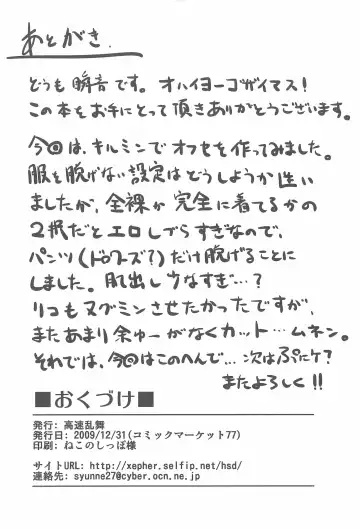 あとがき.
どうも 瞬音 です。オハイヨーゴザイマス!
この本をお手にとって頂きありがとうございます。
今回は、キルミンでオフセを作ってみました。
服を脱げない設定はどうしようか迷い
ましたが、全裸か完全に着てるかの
2択だとエロしづらすぎなので、
パンツ(ドロワーズ?)だけ脱げることに
しました。肌出し少なすぎ…?
リコもヌグミンさせたかったですが、
またあまり余ゆーがなくカット…ムネン。
それでは、今回はこのへんで…次はぷにケ?
またよろしく!!
■おくづけ■
発行: 高速乱舞
発行日: 2009/12/31(コミックマーケット77)
印刷: ねこのしっぽ様
サイトURL: http://xepher.selfip.net/hsd/
連絡先: syunne27@cyber.ocn.ne.jp